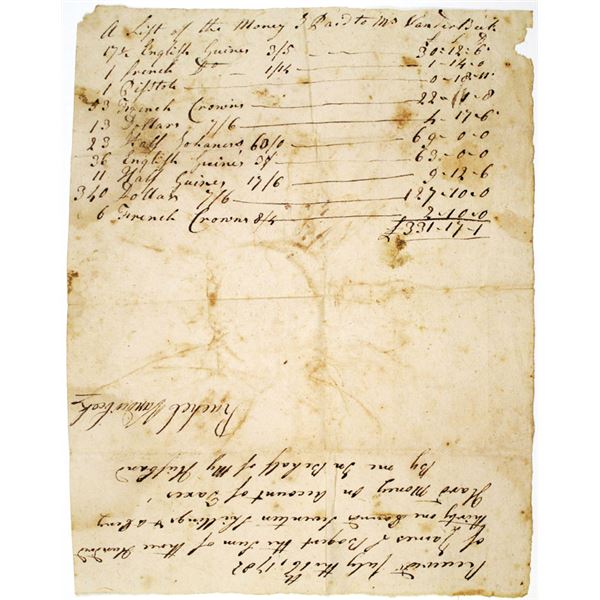 A List of the Money I Paid to Mrs VanderBeek
£ S D
17½ English Guines 3/5 30-12-6
1 French Do 1/14 1-14-0
1 Pistole 0-18-11
53 French Crowns 22-1-8
13 Dollars 7/6 4-17-6
23 Half Johaness 60/0 69-0-0
36 English Guines 63-0-0
11 Half Guines 17/6 9-12-6
340 Dollars 7/6 127-10-0
6 French Crowns 8/4 2-10-0
£331-17-1
Received July the 16th, 1782
of James Bogert the Sum of three Hundred
thirty one pound Seventeen Shillings & a peny
Hard Money on account of Taxes
By me In Behalf of My Husband
Rachel Vanderbeek